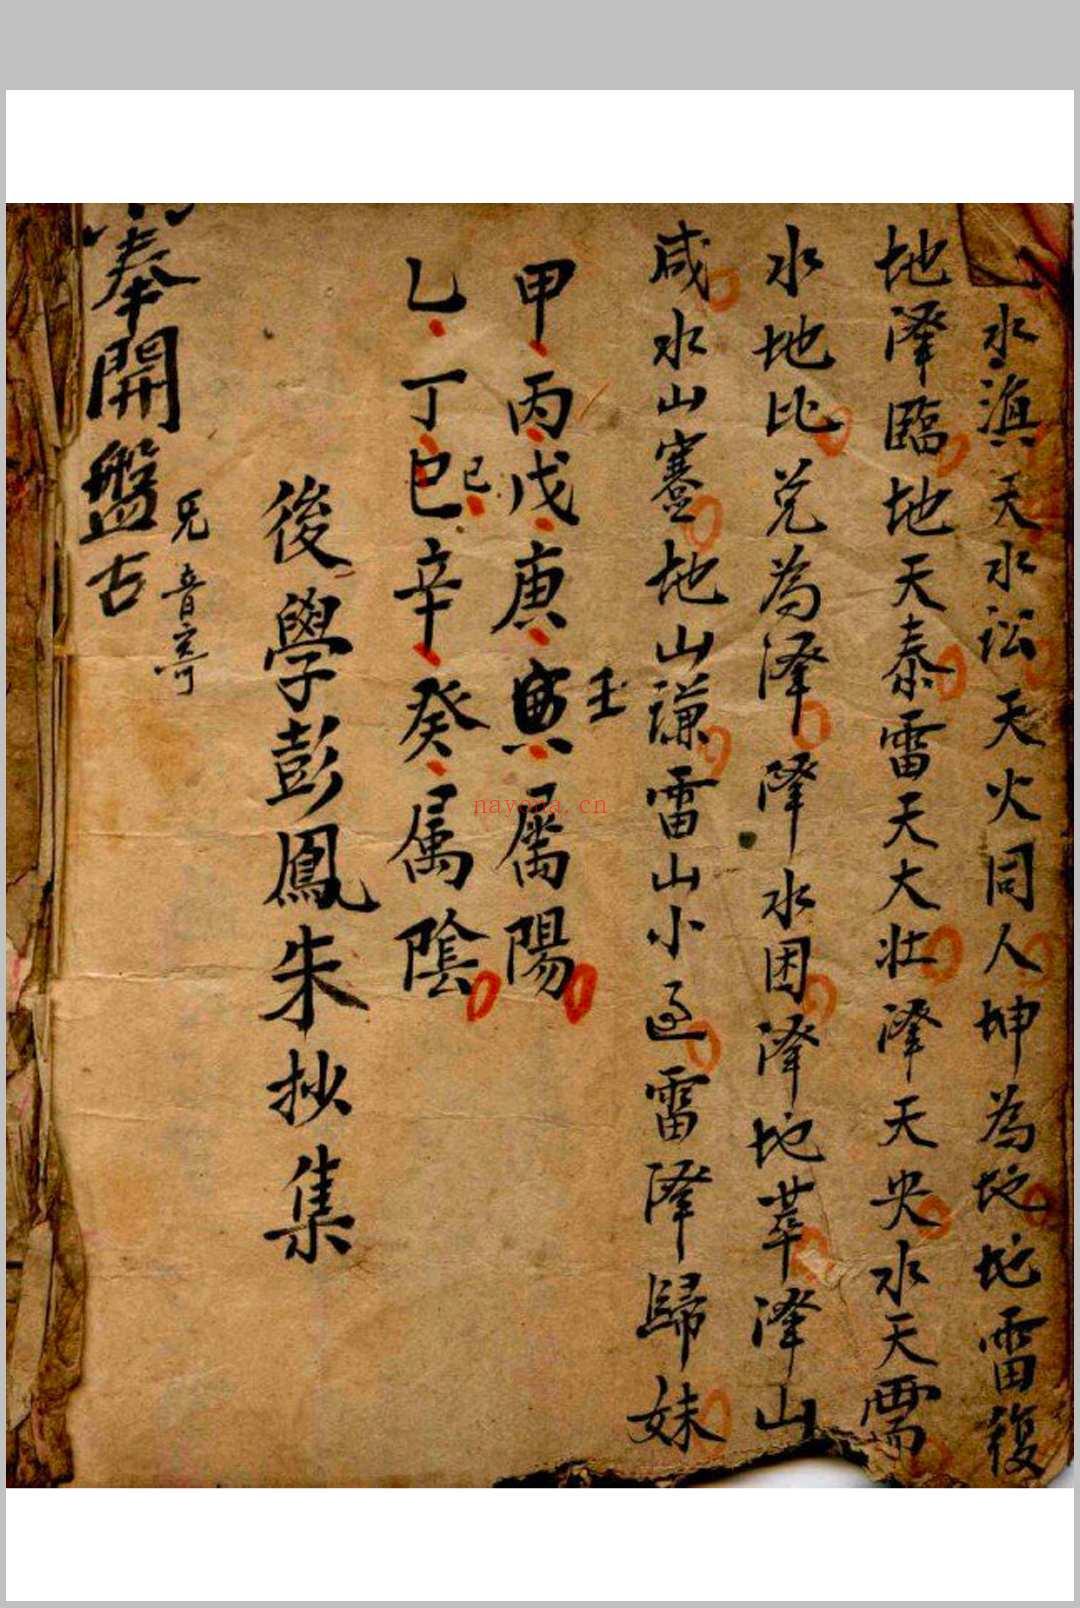 水滇天水訟天火同人坤為地地雷復
地澤臨地天泰雷天大壯澤天夬水天需
水地比兌為澤澤水困澤地萃澤山
咸水山蹇地山謙雷山小過雷澤歸妹
甲丙戊庚壬屬陽
乙丁巳己辛癸屬陰
後學彭鳳朱抄集
兄音寄
奉開盤古
nayona.cn